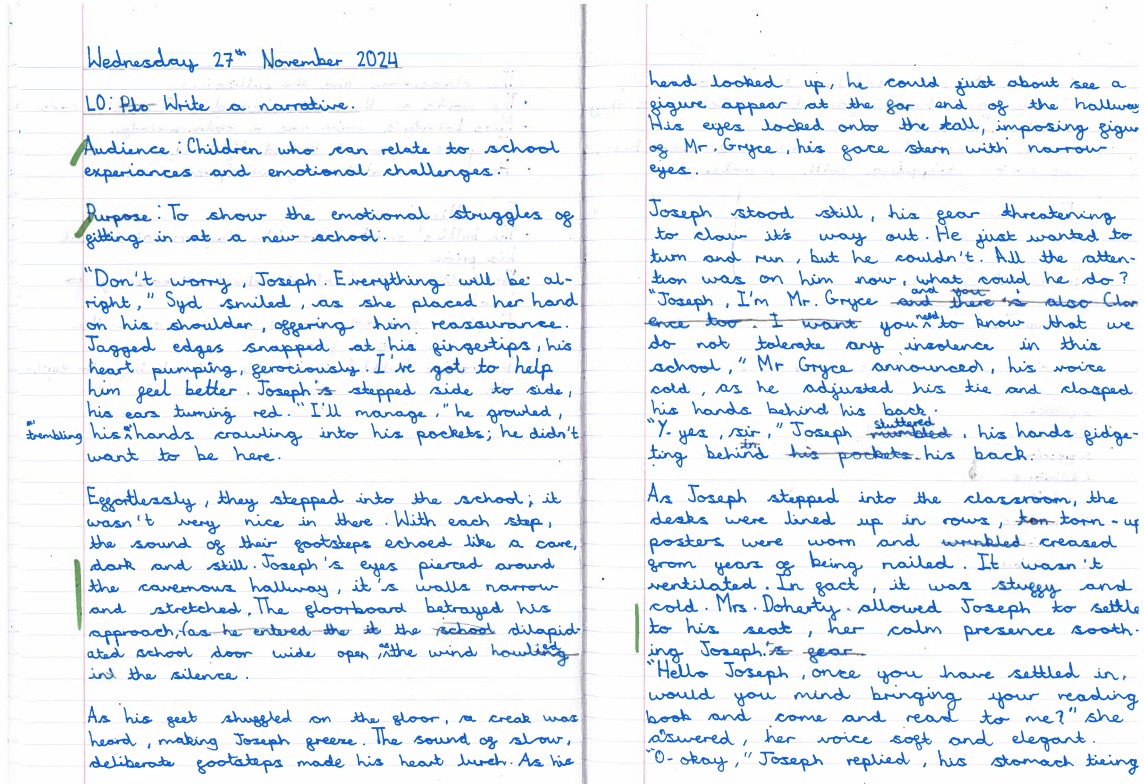 Wednesday 27th November 2024
LO: Pto Write a narrative.
Audience: Children who can relate to school
experiances and emotional challenges.
Purpose: To show the emotional struggles of
fitting in at a new school.
"Don't worry, Joseph. Everything will be al-
right," Syd smiled, as she placed her hand
on his shoulder, offering him reassurance.
Jagged edges snapped at his fingertips, his
heart pumping, ferociously. I've got to help
him feel better. Joseph's stepped side to side,
his ears turning red. "I'll manage," he growled,
trembling
his hands crawling into his pockets; he didn't
want to be here.
Effortlessly, they stepped into the school; it
wasn't very nice in there. With each step,
the sound of their footsteps echoed like a cave,
dark and still. Joseph's eyes pierced around
the cavernous hallway, it's walls narrow
and stretched. The floorboard betrayed his
approach, (as he entered the it the school dilapid-
ated school door wide open, as the wind howling ed
in the silence.
As his feet shuffled on the floor, a creak was
heard, making Joseph freeze. The sound of slow,
deliberate footsteps made his heart lurch. As his
head looked up, he could just about see a
figure appear at the far end of the hallway
His eyes locked onto the tall, imposing figu
of Mr. Gryce, his face stern with narrow
eyes.
Joseph stood still, his fear threatening
to claw it's way out. He just wanted to
turn and run, but he couldn't. All the atten-
tion was on him now, what could he do?
and you
"Joseph, I'm Mr. Gryce and there's also Clar
ence too. I want you need to know that we
do not tolerate any insolence in this
school," Mr Gryce announced, his voice
cold, as he adjusted his tie and clasped
his hands behind his back.
stuttered
"Y. yes, sir," Joseph mumbled, his hands fidge-
ting behind in his pockets. his back.
As Joseph stepped into the classroom, the
desks were lined up in rows, ton torn-up
posters were worn and wrinkled creased
from years of being nailed. It wasn't
ventilated. In fact, it was stuffy and
cold. Mrs. Doherty allowed Joseph to settle
to his seat, her calm presence sooth-
ing Joseph.'s fear.
"Hello Joseph, once you have settled in,
would you mind bringing your reading
book and come and read to me?" she
answered, her voice soft and elegant.
"O-okay," Joseph replied, his stomach tieing